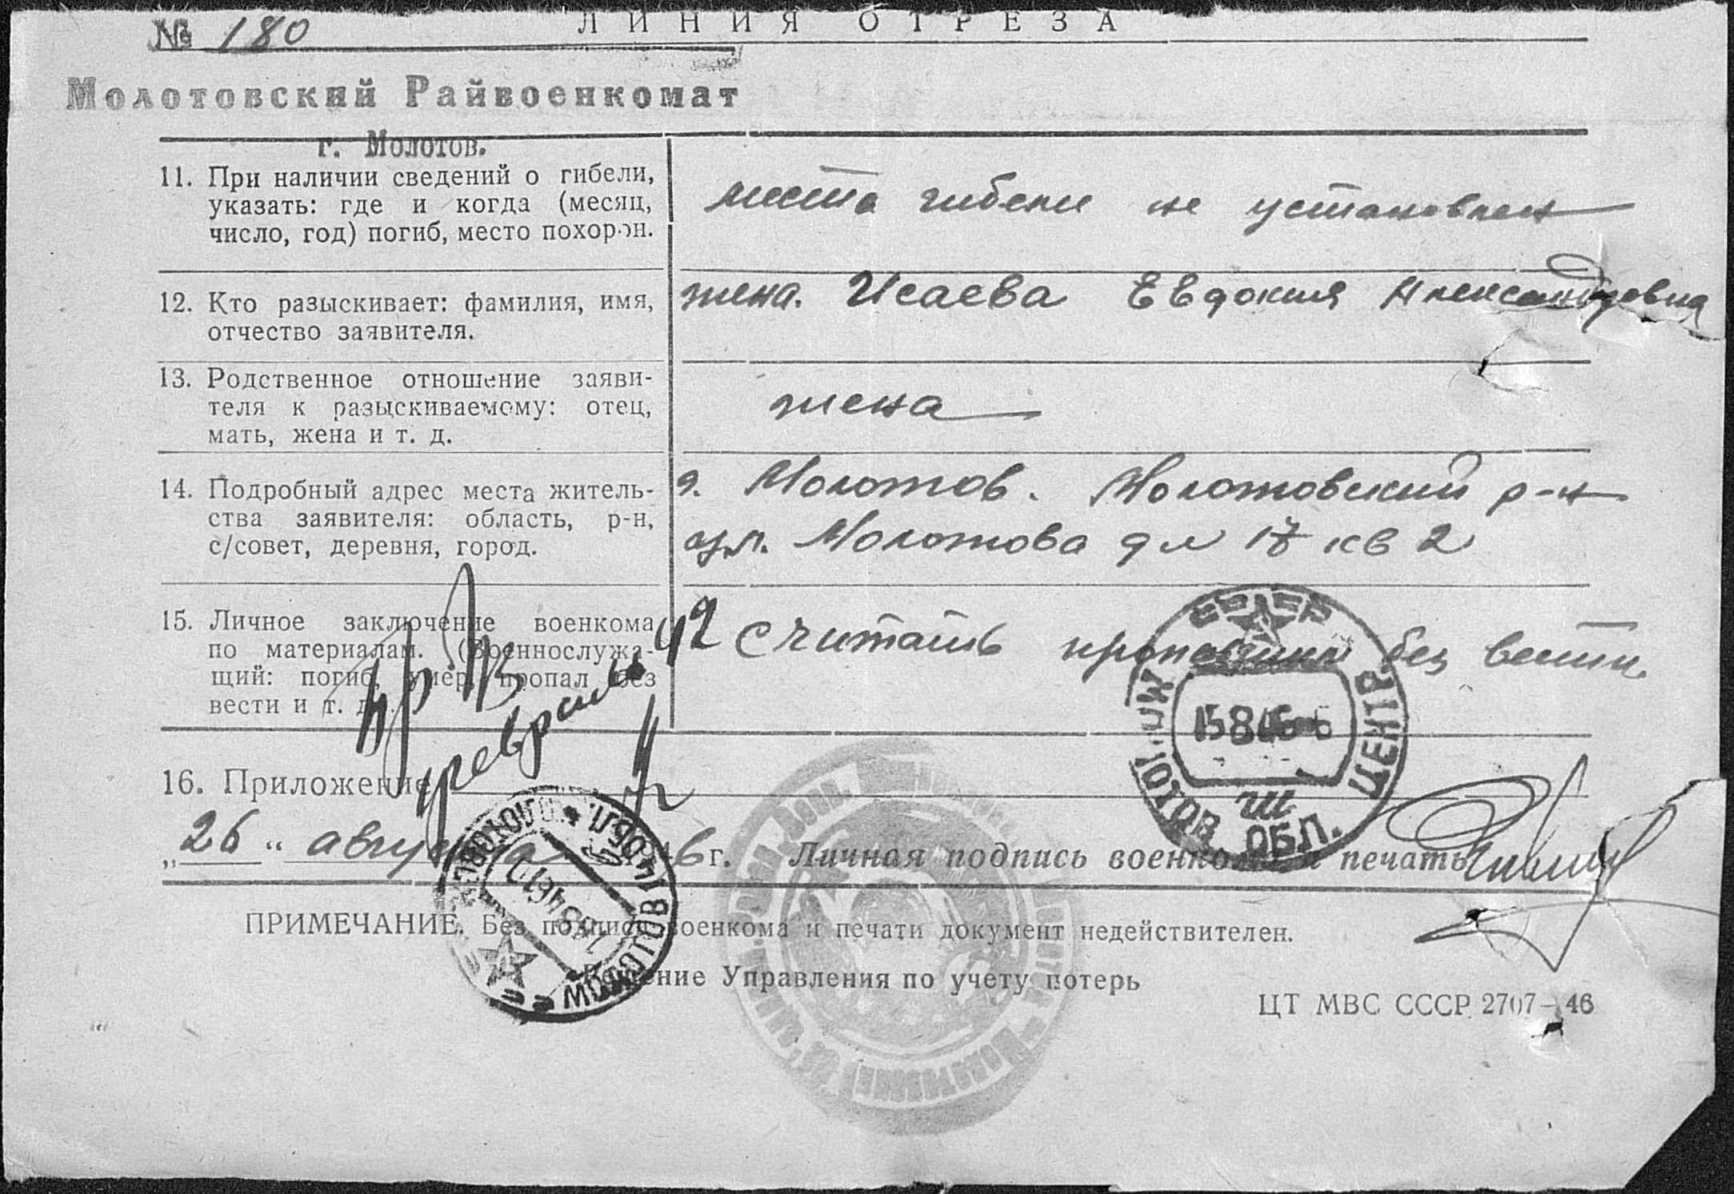 ЛИНИЯ ОТРЕЗА
№ 180
Молотовский Райвоенкомат
г. Молотов.
11. При наличии сведений о гибели,
указать: где и когда (месяц,
число, год) погиб, место похорон.
места гибели не установлен
12. Кто разыскивает: фамилия, имя,
отчество заявителя.
жена. Исаева Евдокия Александровна
13. Родственное отношение заяви-
теля к разыскиваемому: отец,
мать, жена и т. д.
жена
14. Подробный адрес места житель-
ства заявителя: область, р-н,
с/совет, деревня, город.
г. Молотов. Молотовский р-н
ул. Молотова д 17 кв 2
15. Личное заключение военкома
по материалам. (Военнослужа-
щий: погиб, умер, пропал без
вести и т. д.).
считать пропавшим без вести
февраль 42
16. Приложение
„26“ августа 46 г. Личная подпись военкома и печать
ПРИМЕЧАНИЕ. Без подписи военкома и печати документ недействителен.
Решение Управления по учету потерь
ЦТ МВС СССР 2707—46
СССР
МОЛОТОВ ОБЛ.
ЦЕНТР
15846
МОЛОТОВ ОБЛ.